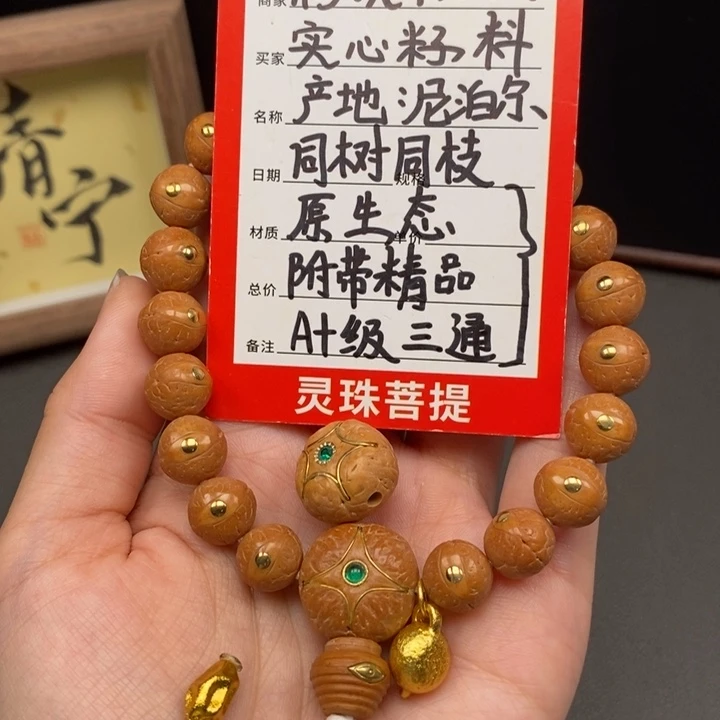 商家
买家 实心籽料
名称 产地泥泊尔
日期 同树同枝 规格
材质 原生态 单价
总价 附带精品
备注 A+级三通
灵珠菩提
清宁